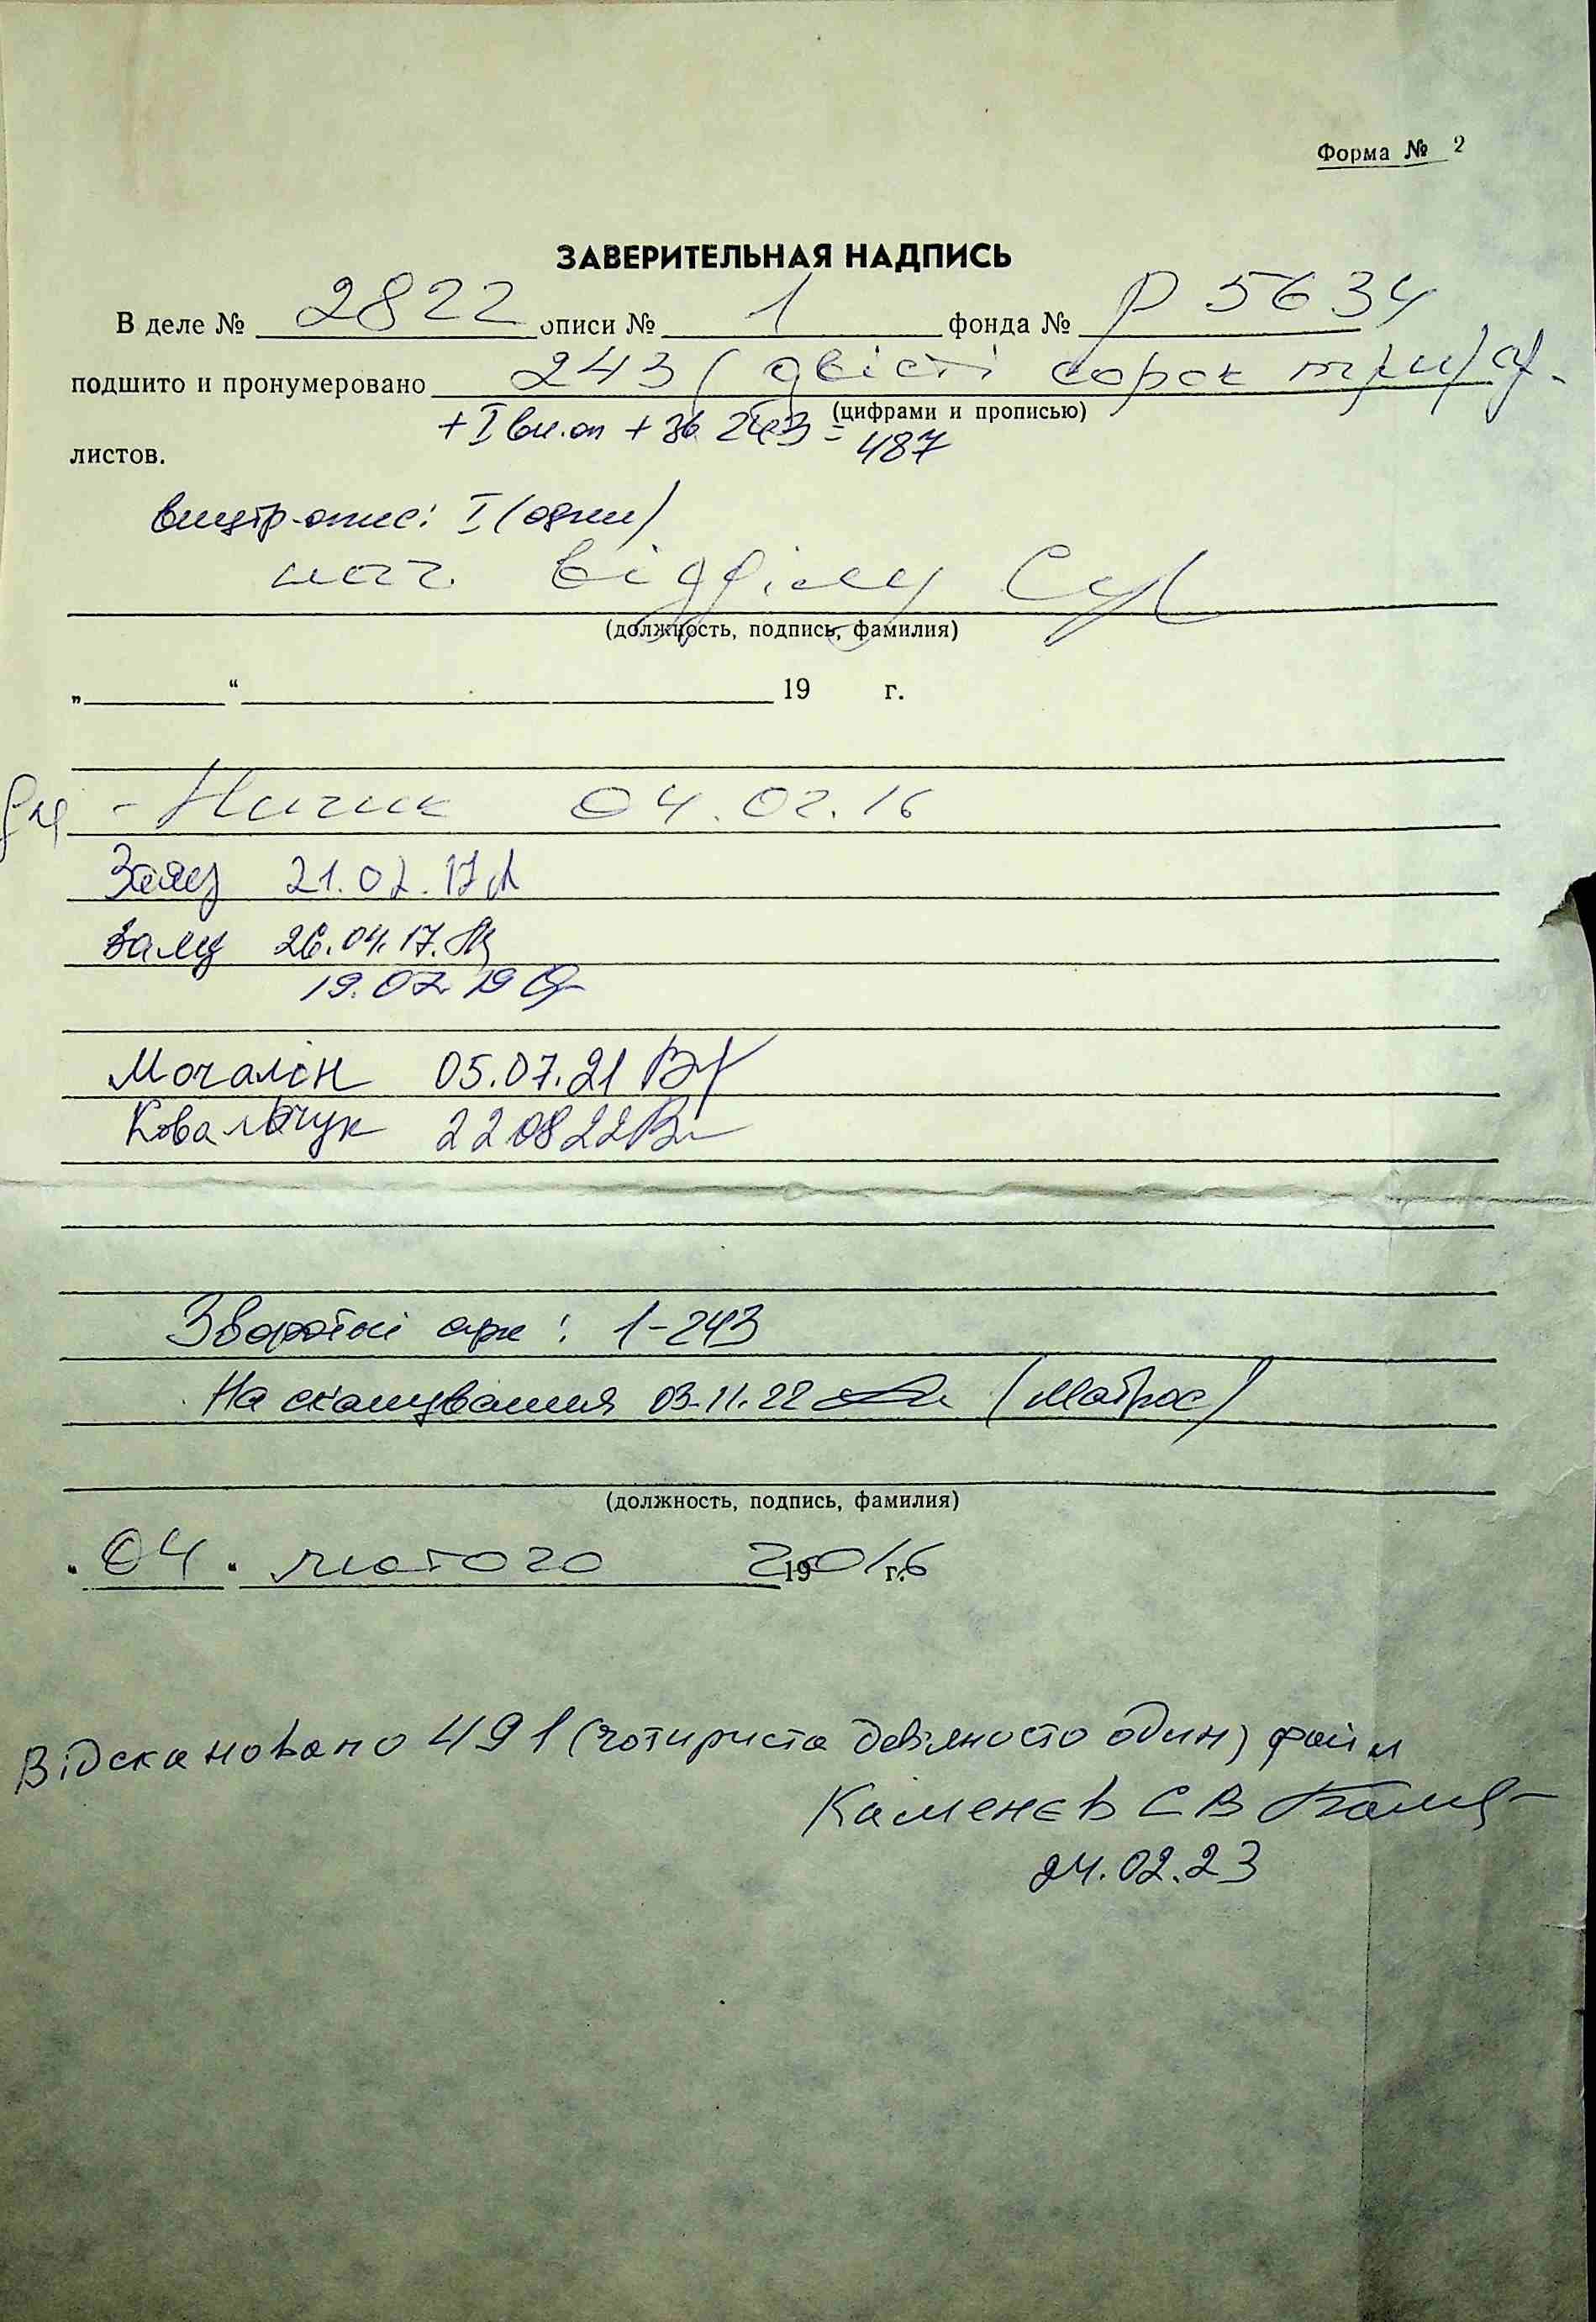 Форма № 2
ЗАВЕРИТЕЛЬНАЯ НАДПИСЬ
В деле № 2822 описи № 1 фонда № Р 5634
подшито и пронумеровано 243 (двісті сорок три)
(цифрами и прописью)
+ I вн.оп + зв. 243 = 487
листов.
внутр-опис: I (один)
нач. відділу
(должность, подпись, фамилия)
„ “ 19 г.
04.02.16
21.02.17
26.04.17.
19.07.19
Мочалін 05.07.21
Ковальчук 22 08 22
Зворотні арк: 1-243
На сканування 03.11.22 (Матрос)
(должность, подпись, фамилия)
„04“ лютого 2016 19 г.
Відскановано 491 (чотириста девяносто один) файл
Каменєв С В
24.02.23